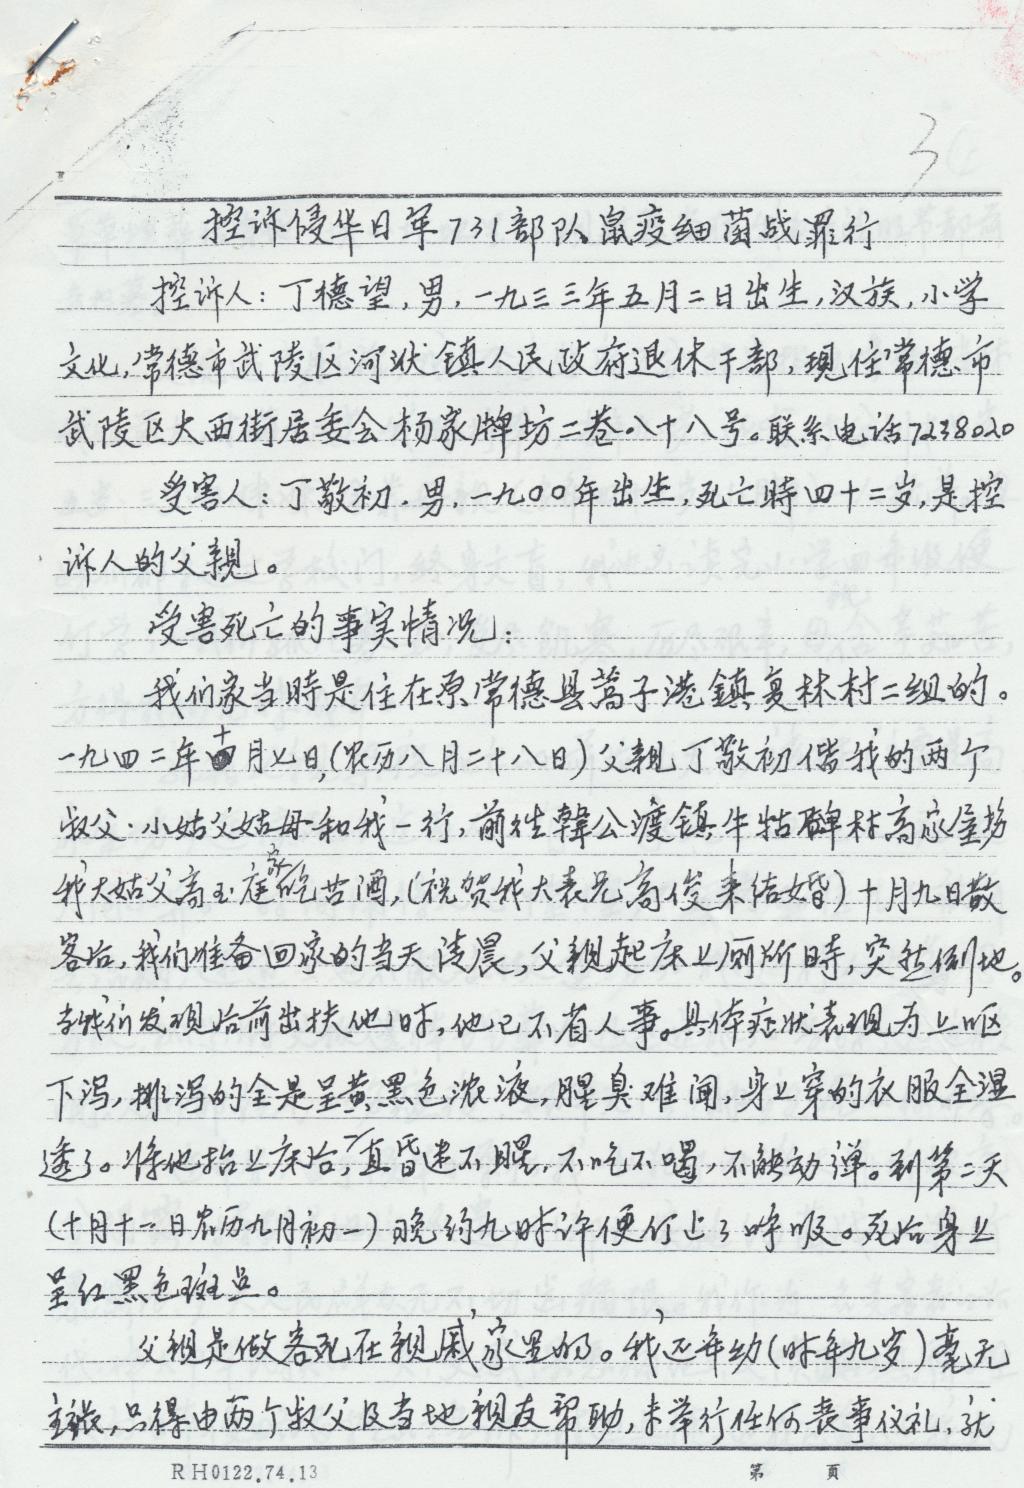 3
控诉侵华日军731部队鼠疫细菌战罪行
控诉人：丁德望，男，一九三三年五月二日出生，汉族，小学
文化，常德市武陵区河洑镇人民政府退休干部，现住常德市
武陵区大西街居委会杨家牌坊二巷八十八号。联系电话7238020
受害人：丁敬初，男，一九〇〇年出生，死亡時四十二岁，是控
诉人的父親。
受害死亡的事实情况：
我们家当時是住在原常德县蒿子港鎮复林村二组的。
一九四二年十月七日，(农历八月二十八日)父親丁敬初偕我的两个
叔父、小姑父姑母和我一行，前往韓公渡鎮牛牯碑村高家屋场
我大姑父高玉庭家吃苦酒，(祝贺我大表兄高俊来结婚)十月九日散
客后，我们准备回家的当天凌晨，父親起床上厕所時，突然倒地。
当我们发现后前出扶他时，他已不省人事。具体症状表现为上呕
下泻，排泻的全是呈黄黑色浓液，腥臭难闻，身上穿的衣服全湿
透了。将他抬上床后，一直昏迷不醒，不吃不喝，不能动弹。到第二天
(十月十一日农历九月初一)晚约九时许便停止了呼吸。死后身上
呈红黑色斑点。
父親是做客死在親戚家里的。我还年幼(时年九岁)毫无
主张，只得由两个叔父及当地親友帮助，未举行任何丧事仪礼，就
RH0122.74.13 第 页